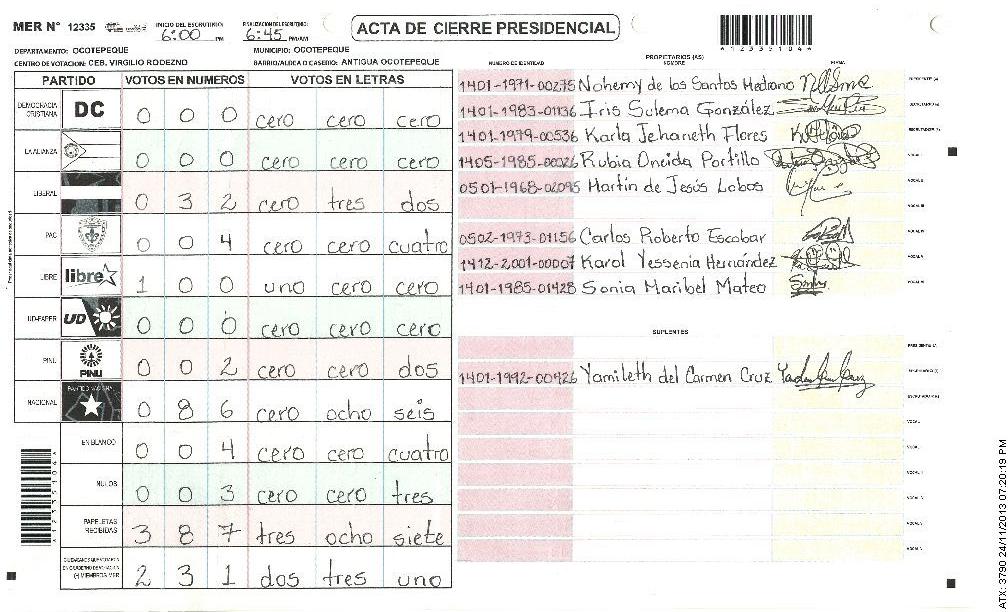 MER N° 12335 INICIO DEL ESCRUTINIO: 6:00 PM FINALIZACION DEL ESCRUTINIO: 6:45 PM/AM
ACTA DE CIERRE PRESIDENCIAL
A12335104A
DEPARTAMENTO: OCOTEPEQUE MUNICIPIO: OCOTEPEQUE
CENTRO DE VOTACION: CEB. VIRGILIO RODEZNO BARRIO/ALDEA O CASERIO: ANTIGUA OCOTEPEQUE
PARTIDO VOTOS EN NUMEROS VOTOS EN LETRAS
DEMOCRACIA CRISTIANA DC 0 0 0 cero cero cero
LA ALIANZA 0 0 0 cero cero cero
LIBERAL 0 3 2 cero tres dos
PAC 0 0 4 cero cero cuatro
LIBRE libre 1 0 0 uno cero cero
UD-FAPER UD 0 0 0 cero cero cero
PINU PINU 0 0 2 cero cero dos
NACIONAL PARTIDO NACIONAL 0 8 6 cero ocho seis
EN BLANCO 0 0 4 cero cero cuatro
NULOS 0 0 3 cero cero tres
PAPELETAS RECIBIDAS 3 8 7 tres ocho siete
(+) MIEMBROS MER 2 3 1 dos tres uno
A12335104A
PROPIETARIOS (AS)
NUMERO DE IDENTIDAD NOMBRE FIRMA
1401-1971-00275 Nohemy de los Santos Medrano PRESIDENTE (A)
1401-1983-01136 Iris Sulema González SECRETARIO (A)
1401-1979-00536 Karla Jehaneth Flores ESCRUTADOR (A)
1405-1985-00026 Rubia Oneida Portillo VOCAL I
0501-1968-02095 Martin de Jesús Lobos VOCAL II
VOCAL III
0502-1973-01156 Carlos Roberto Escobar VOCAL IV
1412-2001-00007 Karol Yessenia Hernández VOCAL V
1401-1985-01428 Sonia Maribel Mateo VOCAL VI
SUPLENTES
PRESIDENTE (A)
1401-1992-00426 Yamileth del Carmen Cruz SECRETARIO (A)
ESCRUTADOR (A)
ATX: 3790 24/11/2013 07:20:19 PM